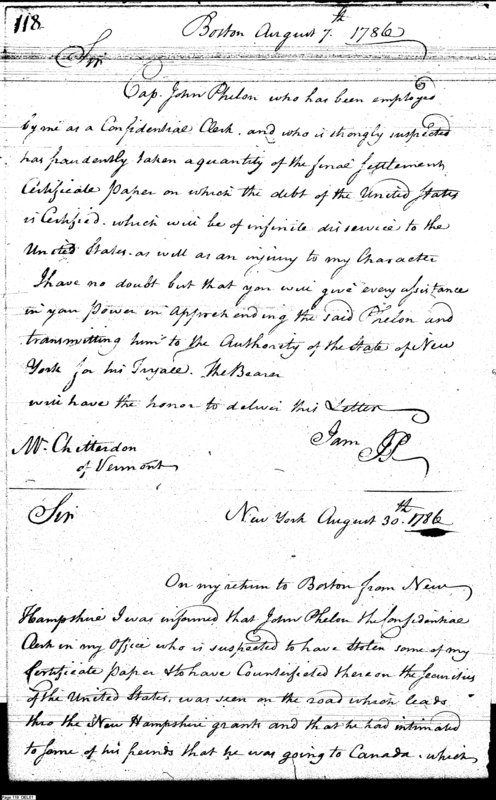 118
Boston August 7.th 1786
Sir
Cap. John Phelon who has been employed
by me as a Confidential Clerk. and who is strongly suspected
has fraudently taken a quantity of the final Settlement
Certificate Paper on which the debt of the United States
is Certified. which will be of infinite disservice to the
United States. as well as an injury to my Character
I have no doubt but that you will give every assistance
in your Power in Apprehending the said Phelon and
transmitting him to the Authority of the State of New
York for his Tryall. The Bearer
will have the honor to deliver this Letter
I am
Mr. Chittendon
of Vermont
Sir
New York August 30.th 1786
On my return to Boston from New
Hampshire I was informed that John Phelon the Confidential
Clerk in my Office who is suspected to have Stolen some of my
Certificate Paper & to have Counterfieted thereon the Securities
of the United States. was seen on the road which leads
thro the New Hampshire grants and that he had intimated
to some of his freinds that he was going to Canada. which
Page 118